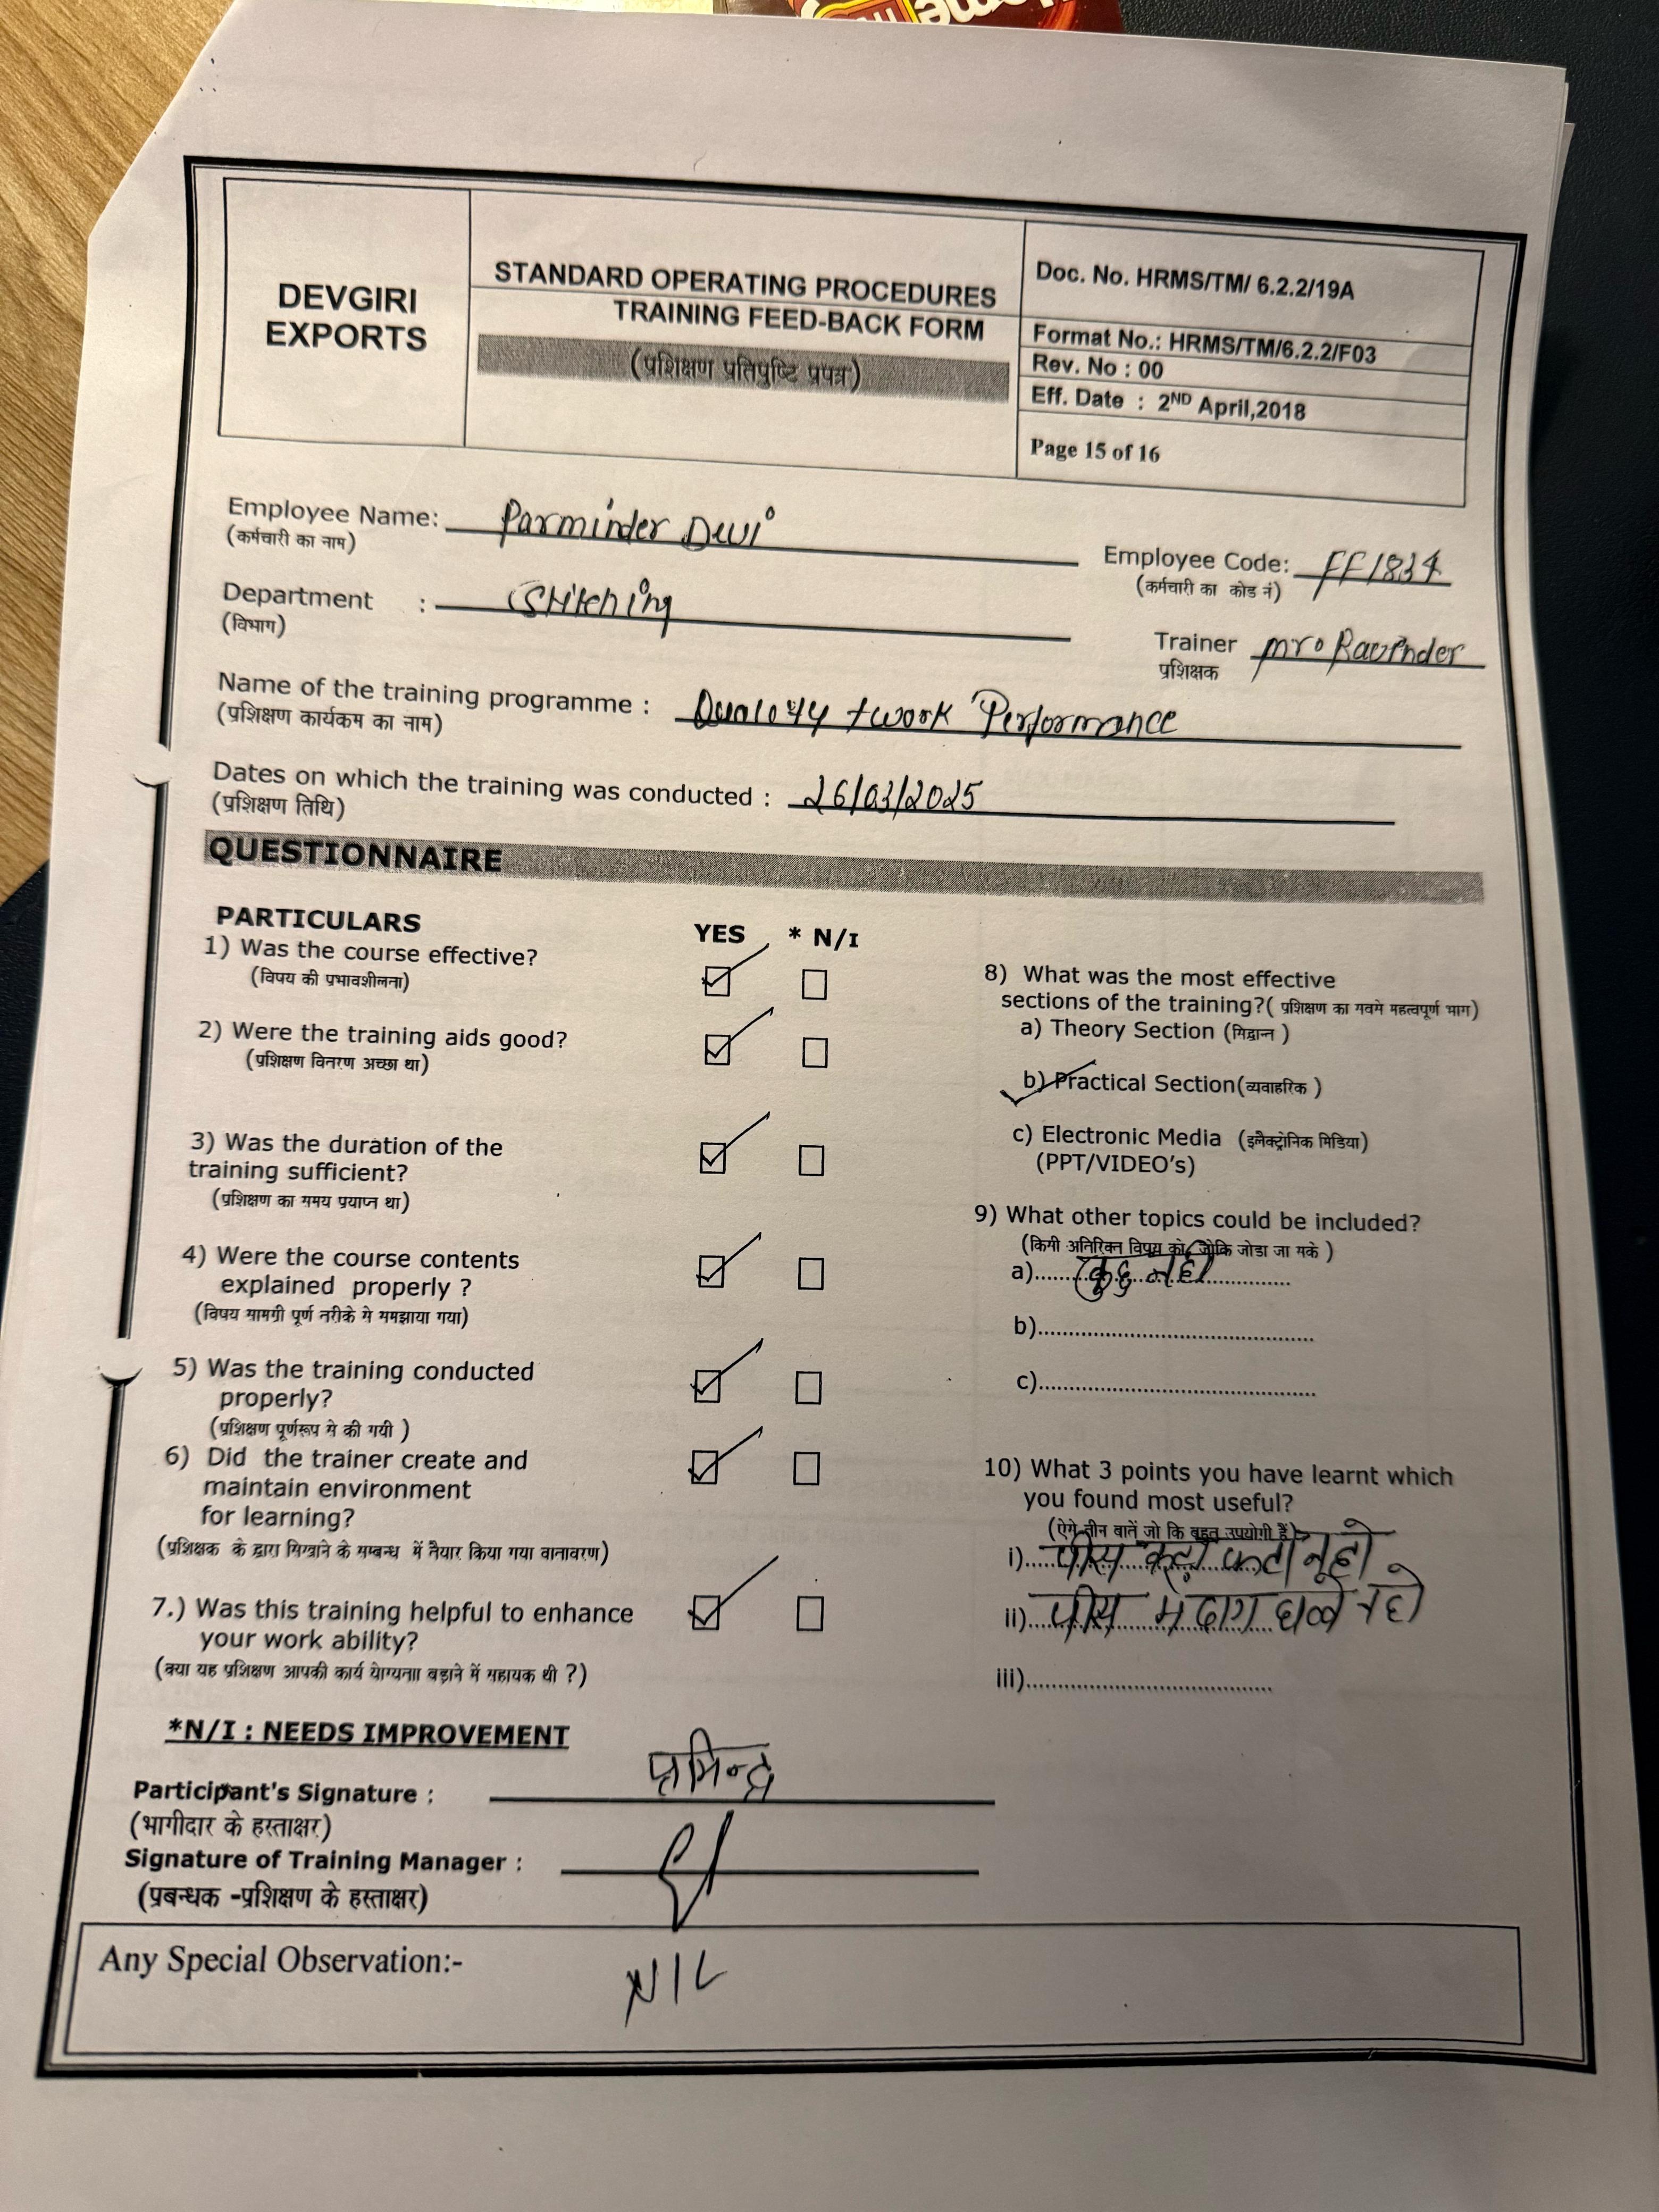 DEVGIRI
EXPORTS
STANDARD OPERATING PROCEDURES
TRAINING FEED-BACK FORM
(प्रशिक्षण प्रतिपुष्टि प्रपत्र)
Doc. No. HRMS/TM/ 6.2.2/19A
Format No.: HRMS/TM/6.2.2/F03
Rev. No : 00
Eff. Date : 2ND April,2018
Page 15 of 16
Employee Name: Parminder Devi
(कर्मचारी का नाम)
Employee Code: FF1834
(कर्मचारी का कोड नं)
Department : Stitching
(विभाग)
Trainer Mr. Ravinder
प्रशिक्षक
Name of the training programme : Quality + work Performance
(प्रशिक्षण कार्यकम का नाम)
Dates on which the training was conducted : 26/03/2025
(प्रशिक्षण तिथि)
QUESTIONNAIRE
PARTICULARS
YES * N/I
1) Was the course effective?
(विषय की प्रभावशीलना)
2) Were the training aids good?
(प्रशिक्षण विनरण अच्छा था)
3) Was the duration of the
training sufficient?
(प्रशिक्षण का ममय प्रयाप्न था)
4) Were the course contents
explained properly ?
(विषय मामग्री पूर्ण नरीके मे ममझाया गया)
5) Was the training conducted
properly?
(प्रशिक्षण पूर्णरूप मे की गयी )
6) Did the trainer create and
maintain environment
for learning?
(प्रशिक्षक के द्वारा मिखाने के मम्बन्ध में नैयार किया गया वानावरण)
7.) Was this training helpful to enhance
your work ability?
(क्या यह प्रशिक्षण आपकी कार्य योग्यनाा बड़ाने में महायक थी ?)
8) What was the most effective
sections of the training?( प्रशिक्षण का मवमे महत्वपूर्ण भाग)
a) Theory Section (मिद्वान्न )
b) Practical Section(व्यवाहरिक )
c) Electronic Media (इलैक्ट्रोनिक मिडिया)
(PPT/VIDEO's)
9) What other topics could be included?
(किमी अनिरिक्न विषय को जोकि जोडा जा मके )
a) कुछ नही
b)
c)
10) What 3 points you have learnt which
you found most useful?
(ऐमे तीन बातें जो कि बहुत उपयोगी हैं)
i) पीस कटा फटा न हो
ii) पीस में दाग धब्बे न हो
iii)
*N/I : NEEDS IMPROVEMENT
Participant's Signature : प्रमिन्द्र
(भागीदार के हस्ताक्षर)
Signature of Training Manager :
(प्रबन्धक -प्रशिक्षण के हस्ताक्षर)
Any Special Observation:- NIL